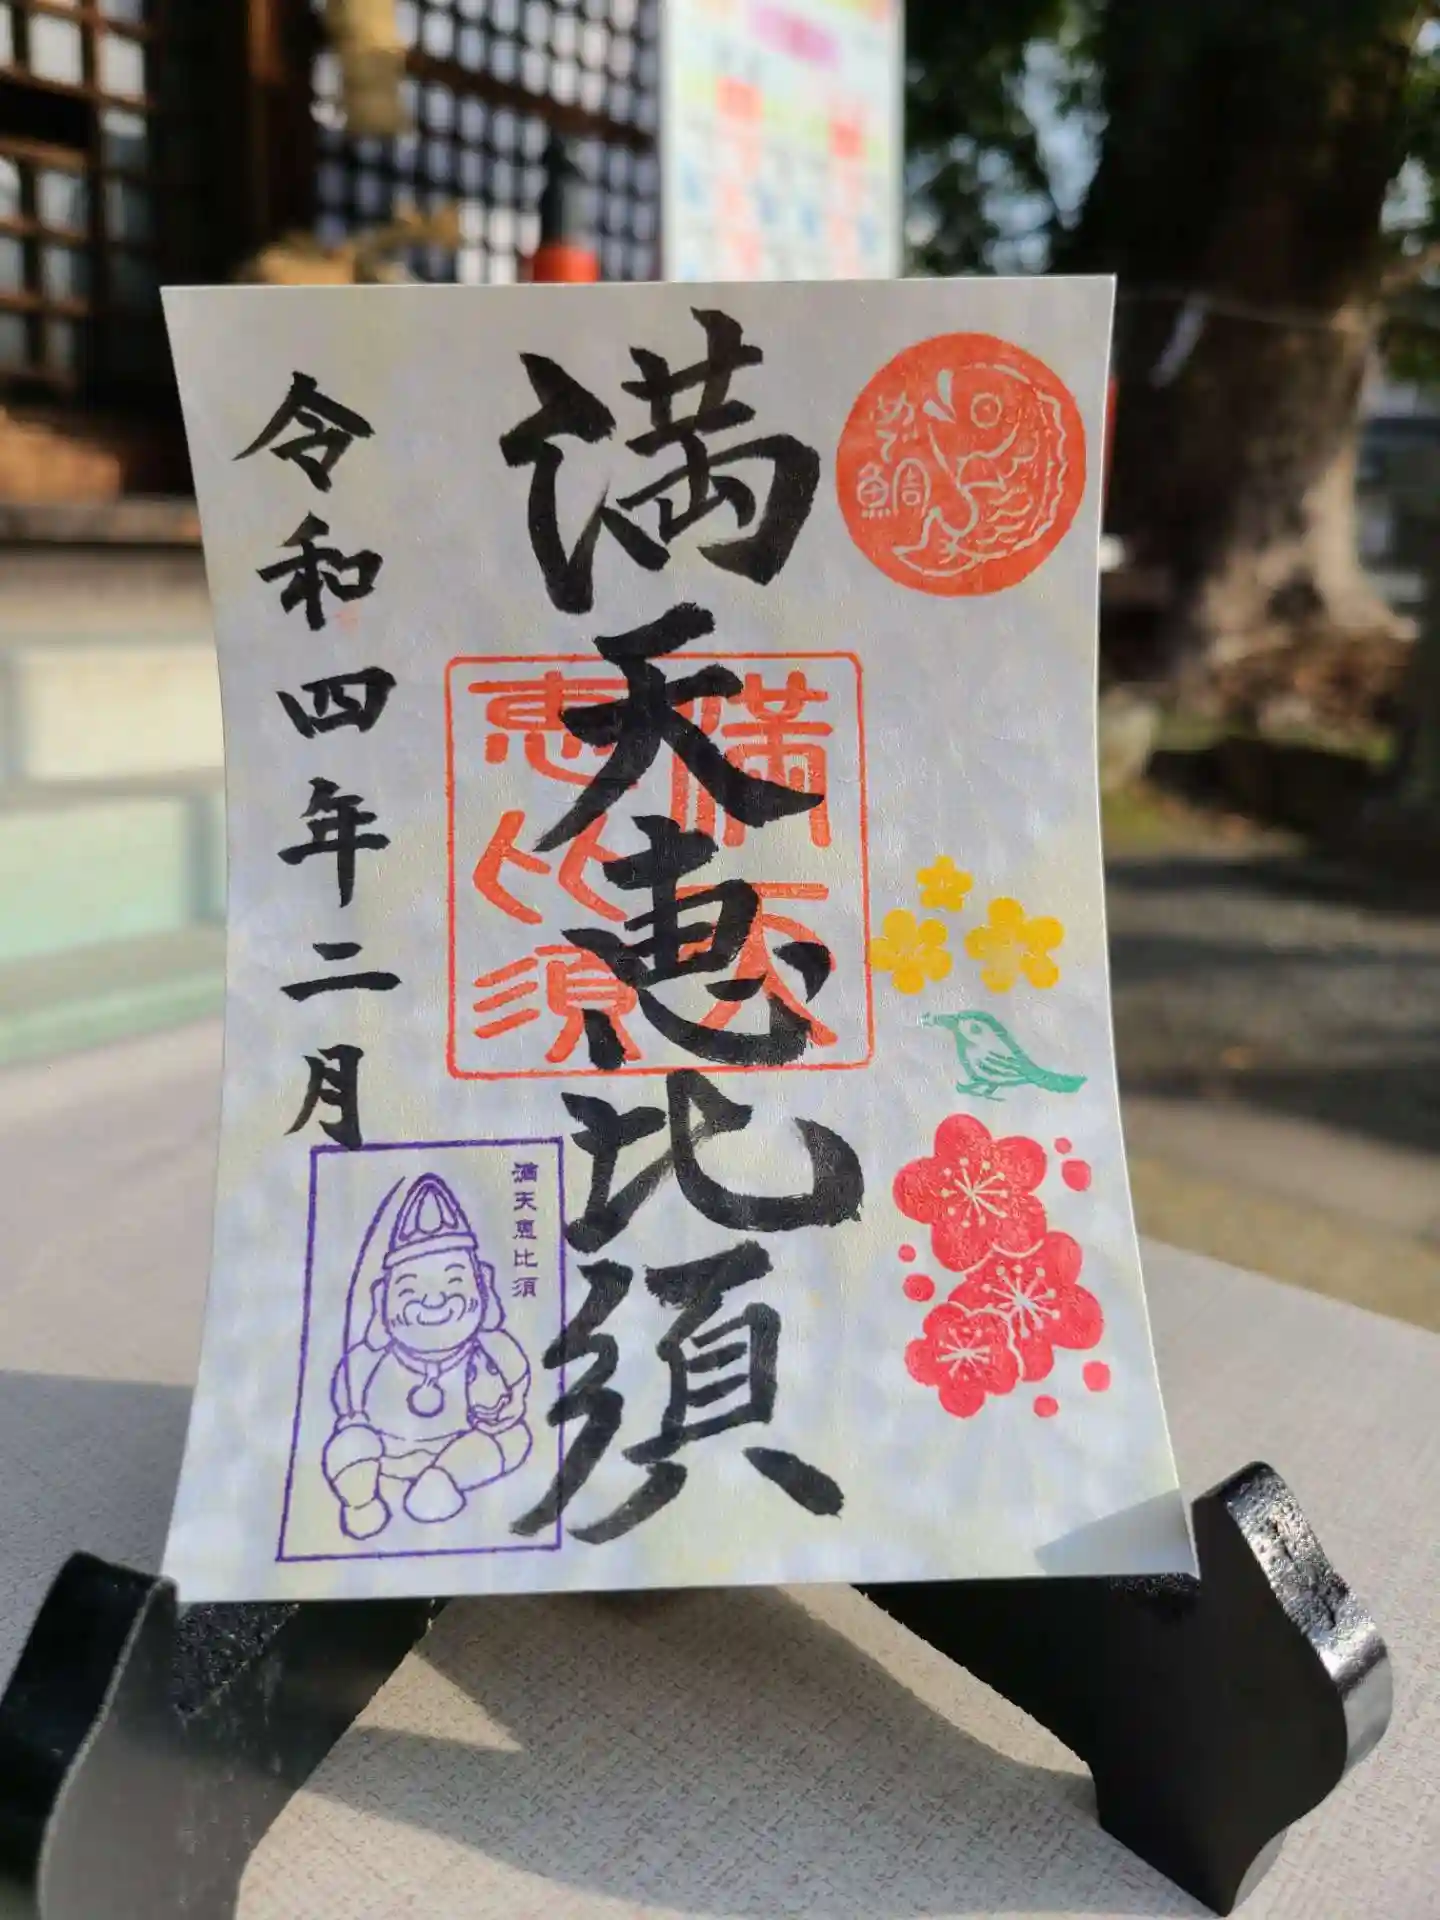 めで鯛
満天恵比須
満天
恵比須
令和四年二月
満天恵比須